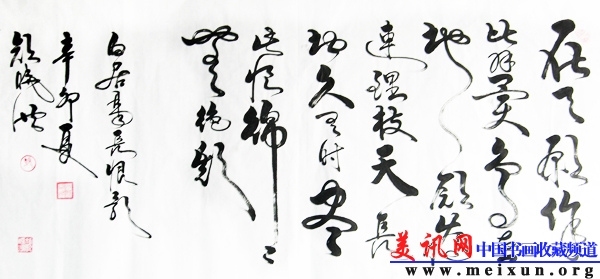 在天愿作
比翼鸟在
地愿为
连理枝天长
地久有时尽
此恨绵绵
无绝期
白居易长恨歌
辛卯夏
美讯网 中国书画收藏频道
www.meixun.org